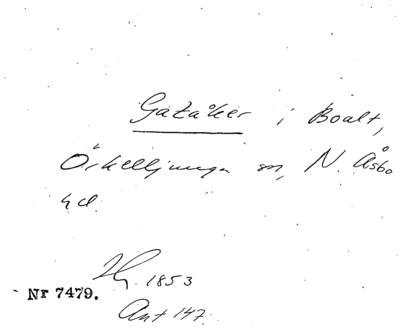 Gatåker i Boalt,
Örkelljunga sn, N. Åsbo
hd.
Hg. 1853
Nr 7479.
Ant 147.